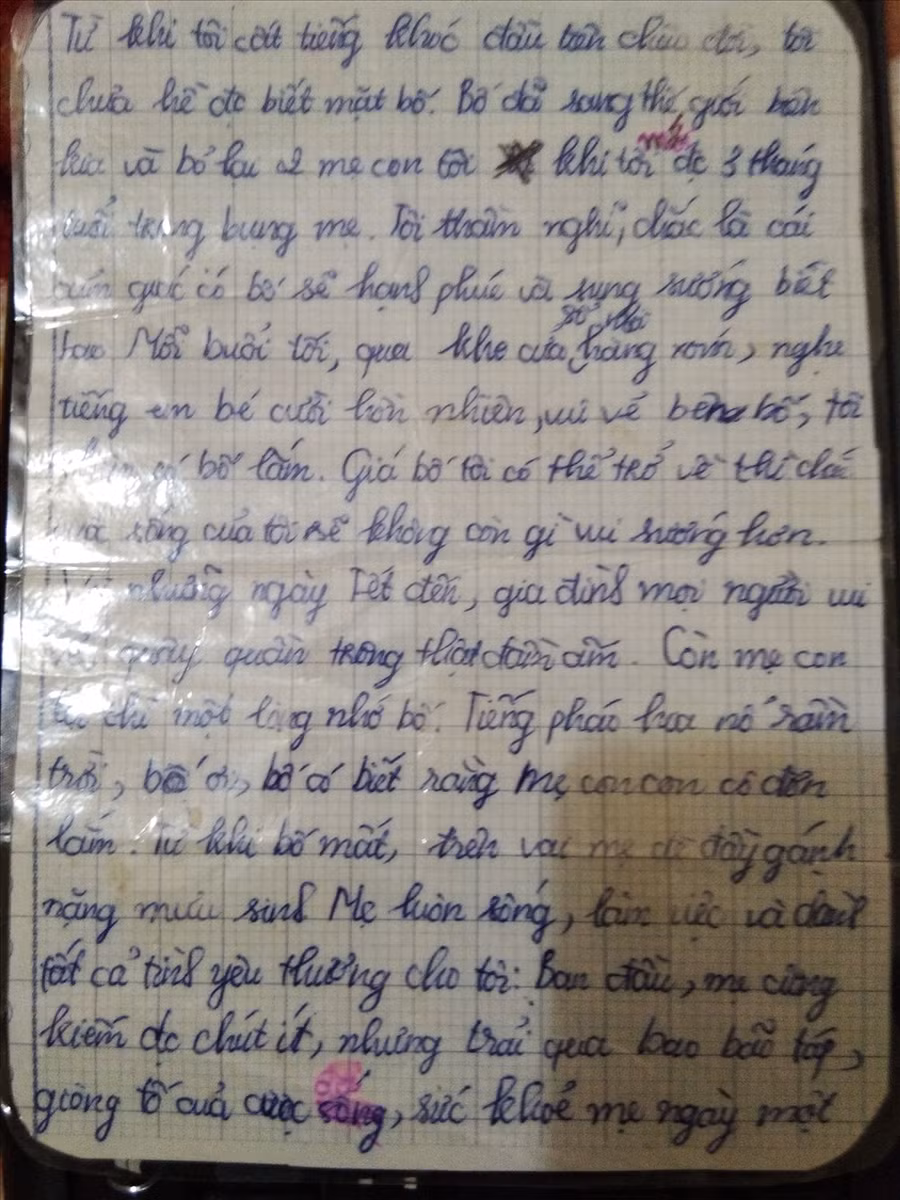 Từ khi tôi cất tiếng khóc đầu tiên chào đời, tôi
chưa hề đc biết mặt bố. Bố đã sang thế giới bên
kia và bỏ lại 2 mẹ con tôi khi tôi mới đc 3 tháng
tuổi trong bụng mẹ. Tôi thầm nghĩ, chắc là cái
cảm giác có bố sẽ hạnh phúc và sung sướng biết
bao Mỗi buổi tối, qua khe cửa sổ nhà hàng xóm, nghe
tiếng em bé cười hồn nhiên, vui vẻ bên bố, tôi
thèm có bố lắm. Giá bố tôi có thể trở về thì chắc
cuộc sống của tôi sẽ không còn gì vui sướng hơn.
những ngày Tết đến, gia đình mọi người vui
vẻ quây quần trông thật đầm ấm. Còn mẹ con
tôi chỉ một lòng nhớ bố. Tiếng pháo hoa nổ rầm
trời, bố ơi, bố có biết rằng mẹ con con cô đơn
lắm. Từ khi bố mất, trên vai mẹ đè đầy gánh
nặng mưu sinh Mẹ luôn sống, làm việc và dành
tất cả tình yêu thương cho tôi. Ban đầu, mẹ cũng
kiếm đc chút ít, nhưng trải qua bao bão táp,
giông tố của cuộc đời, sức khoẻ mẹ ngày một